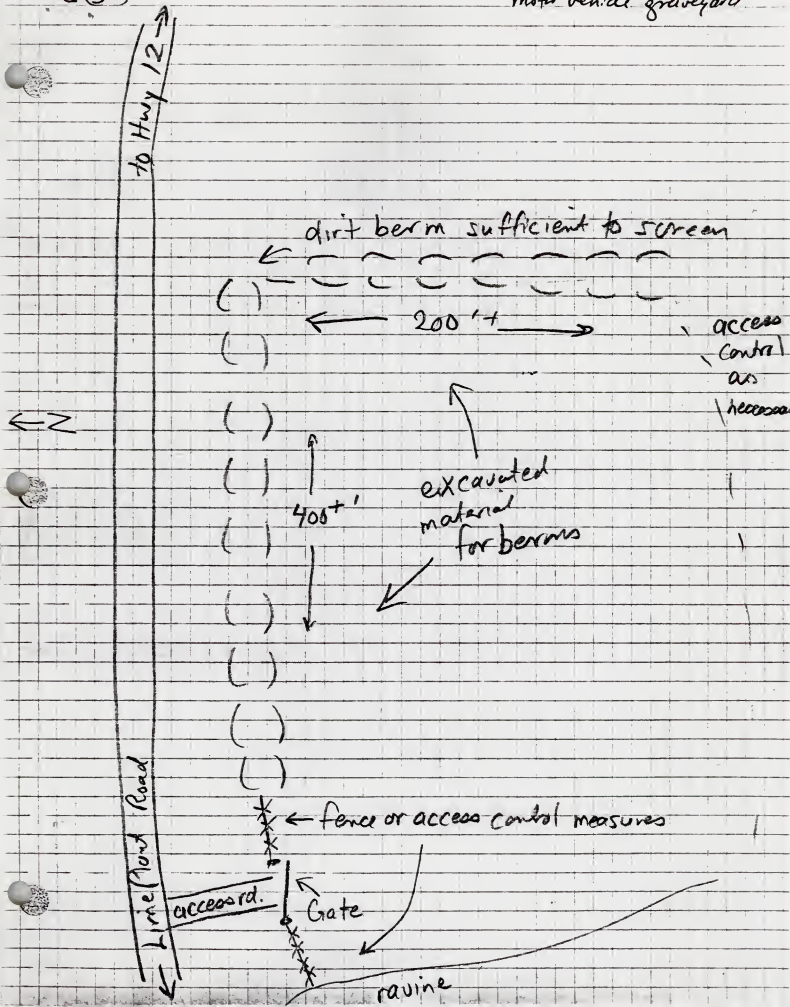 motor vehicle graveyard
to Hwy 12
dirt berm sufficient to screen
200'+
access
control
as
N
400+'
excavated
material
for berms
fence or access control measures
Road
access rd.
Gate
ravine